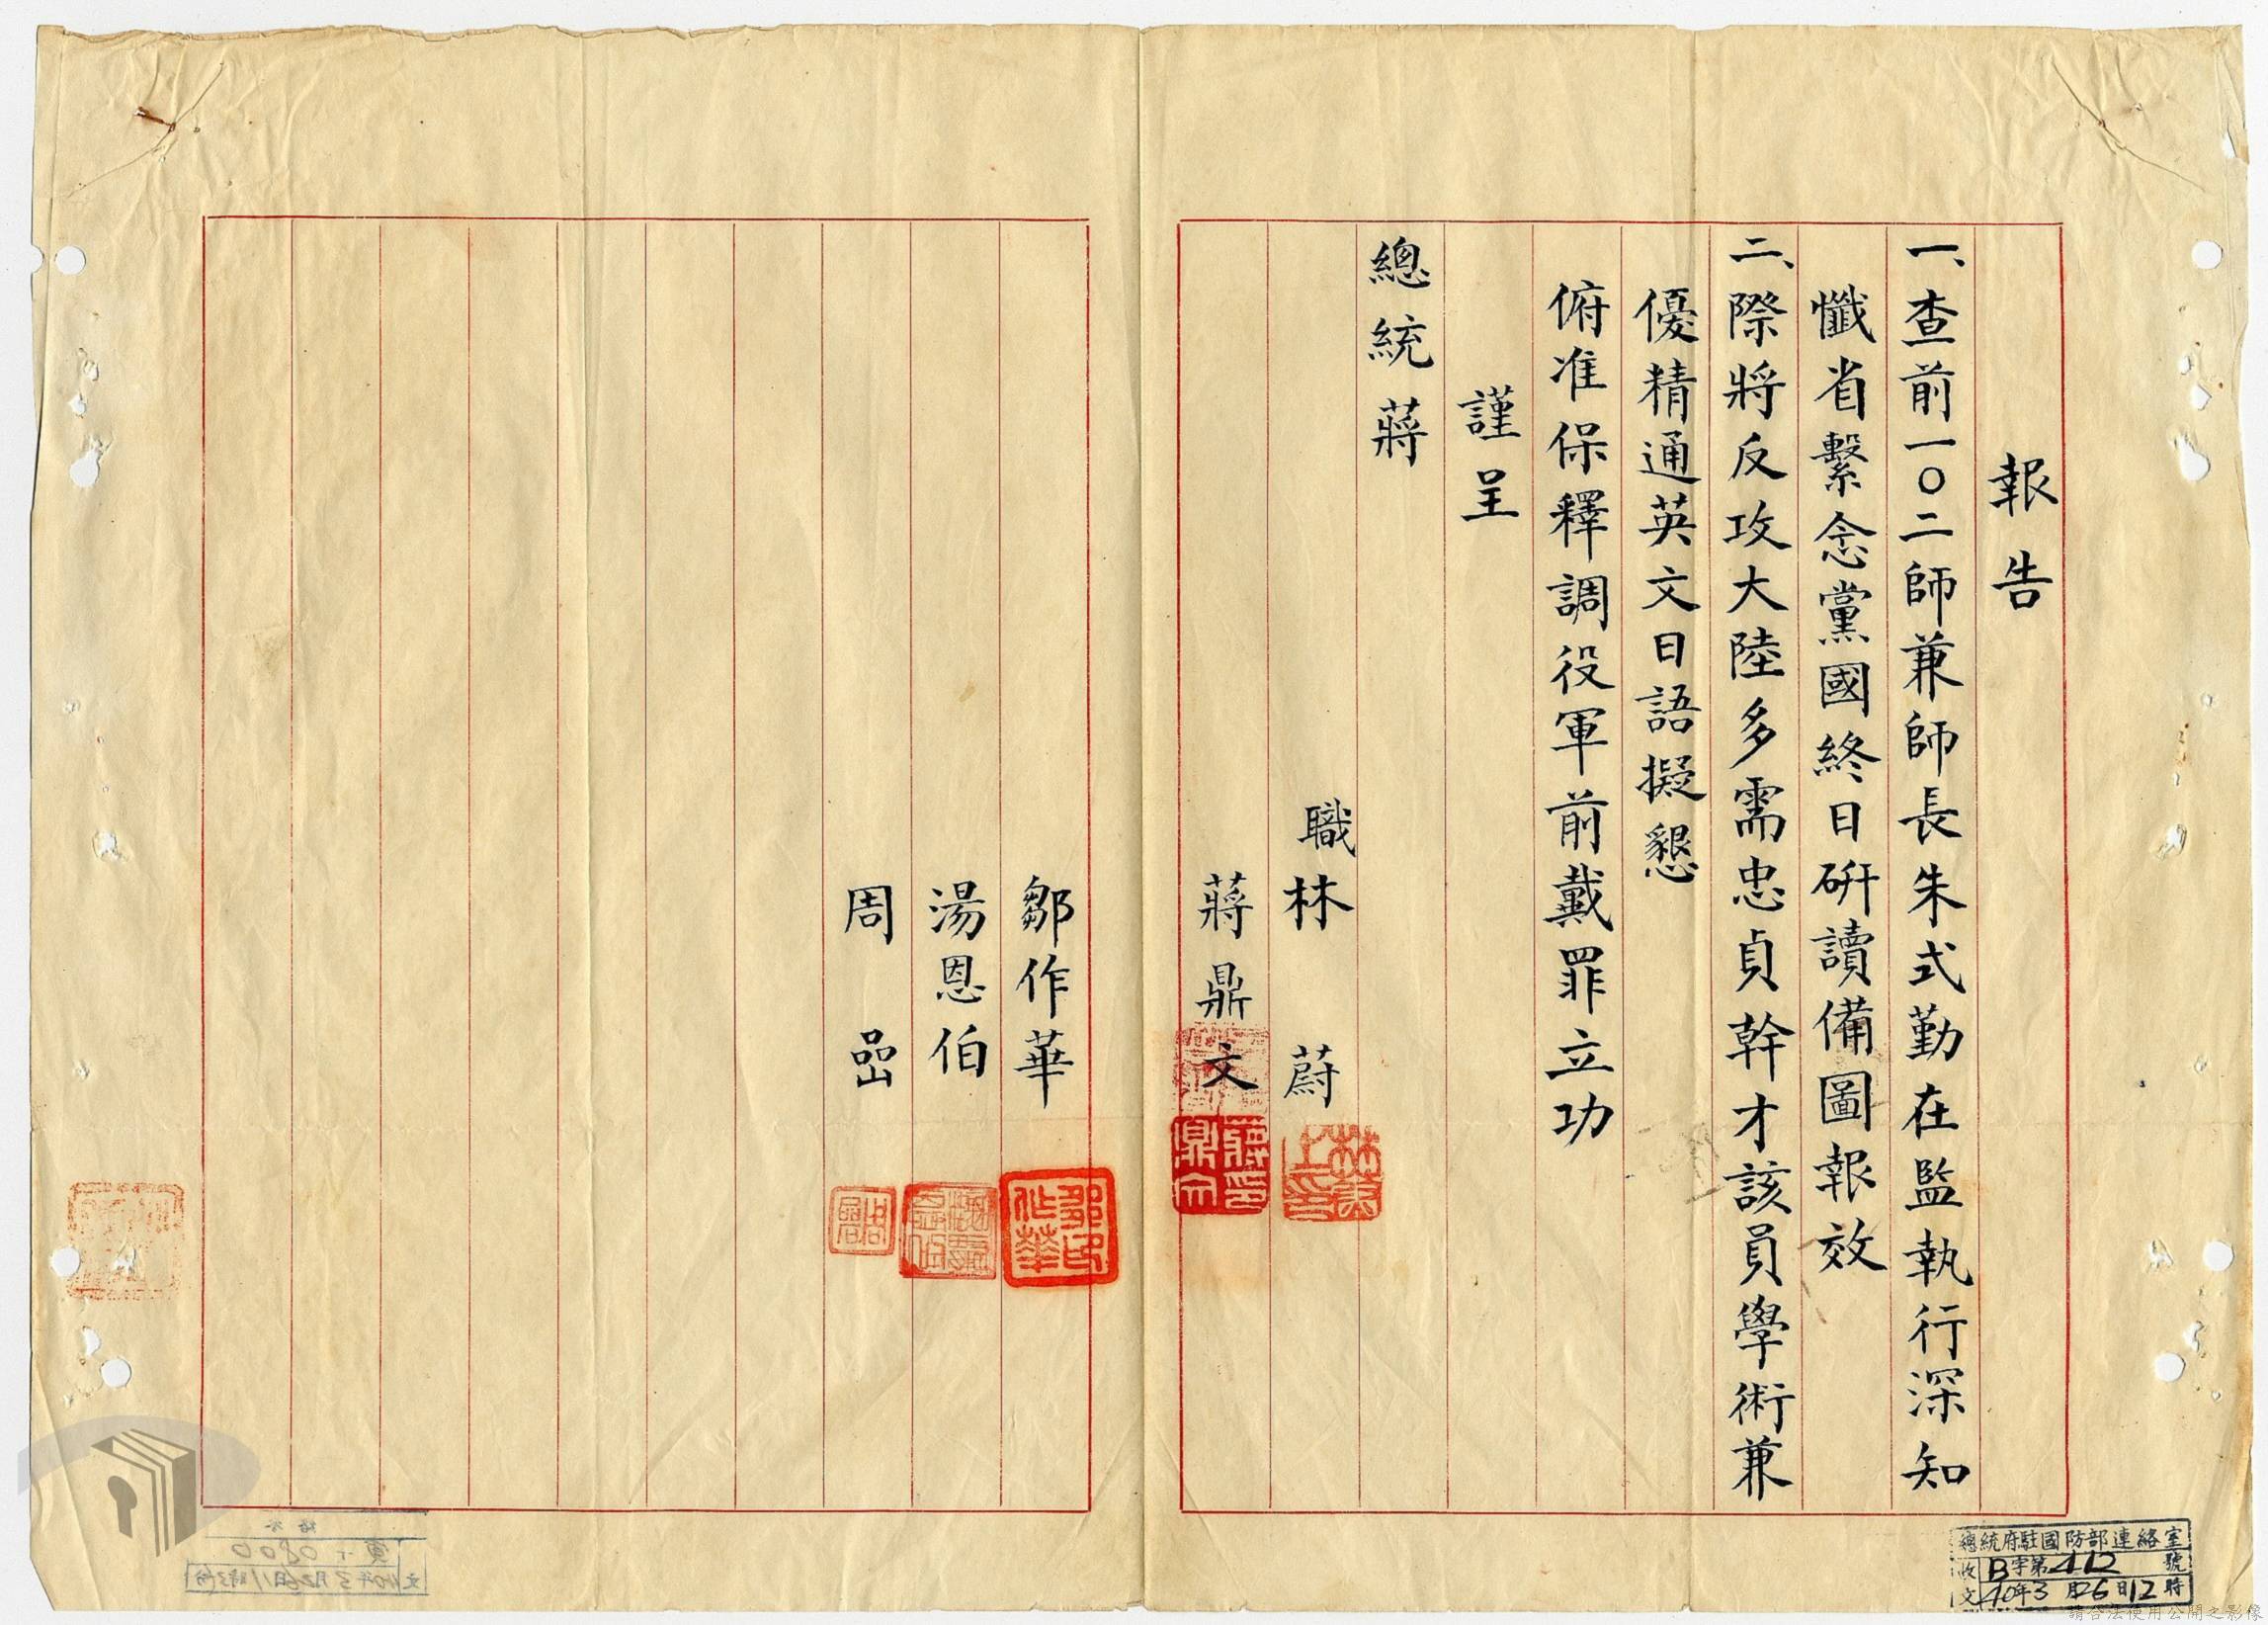 報告
一、查前一〇二師兼師長朱式勤在監執行深知
懺省繫念黨國終日研讀備圖報效
二、際將反攻大陸多需忠貞幹才該員學術兼
優精通英文日語擬懇
俯准保釋調役軍前戴罪立功
謹呈
總統蔣
職林蔚
蔣鼎文
鄒作華
湯恩伯
周嵒
鄒印作華
總統府駐國防部連絡室
收文 B字第412號
40年3月26日12時
請合法使用公開之影像